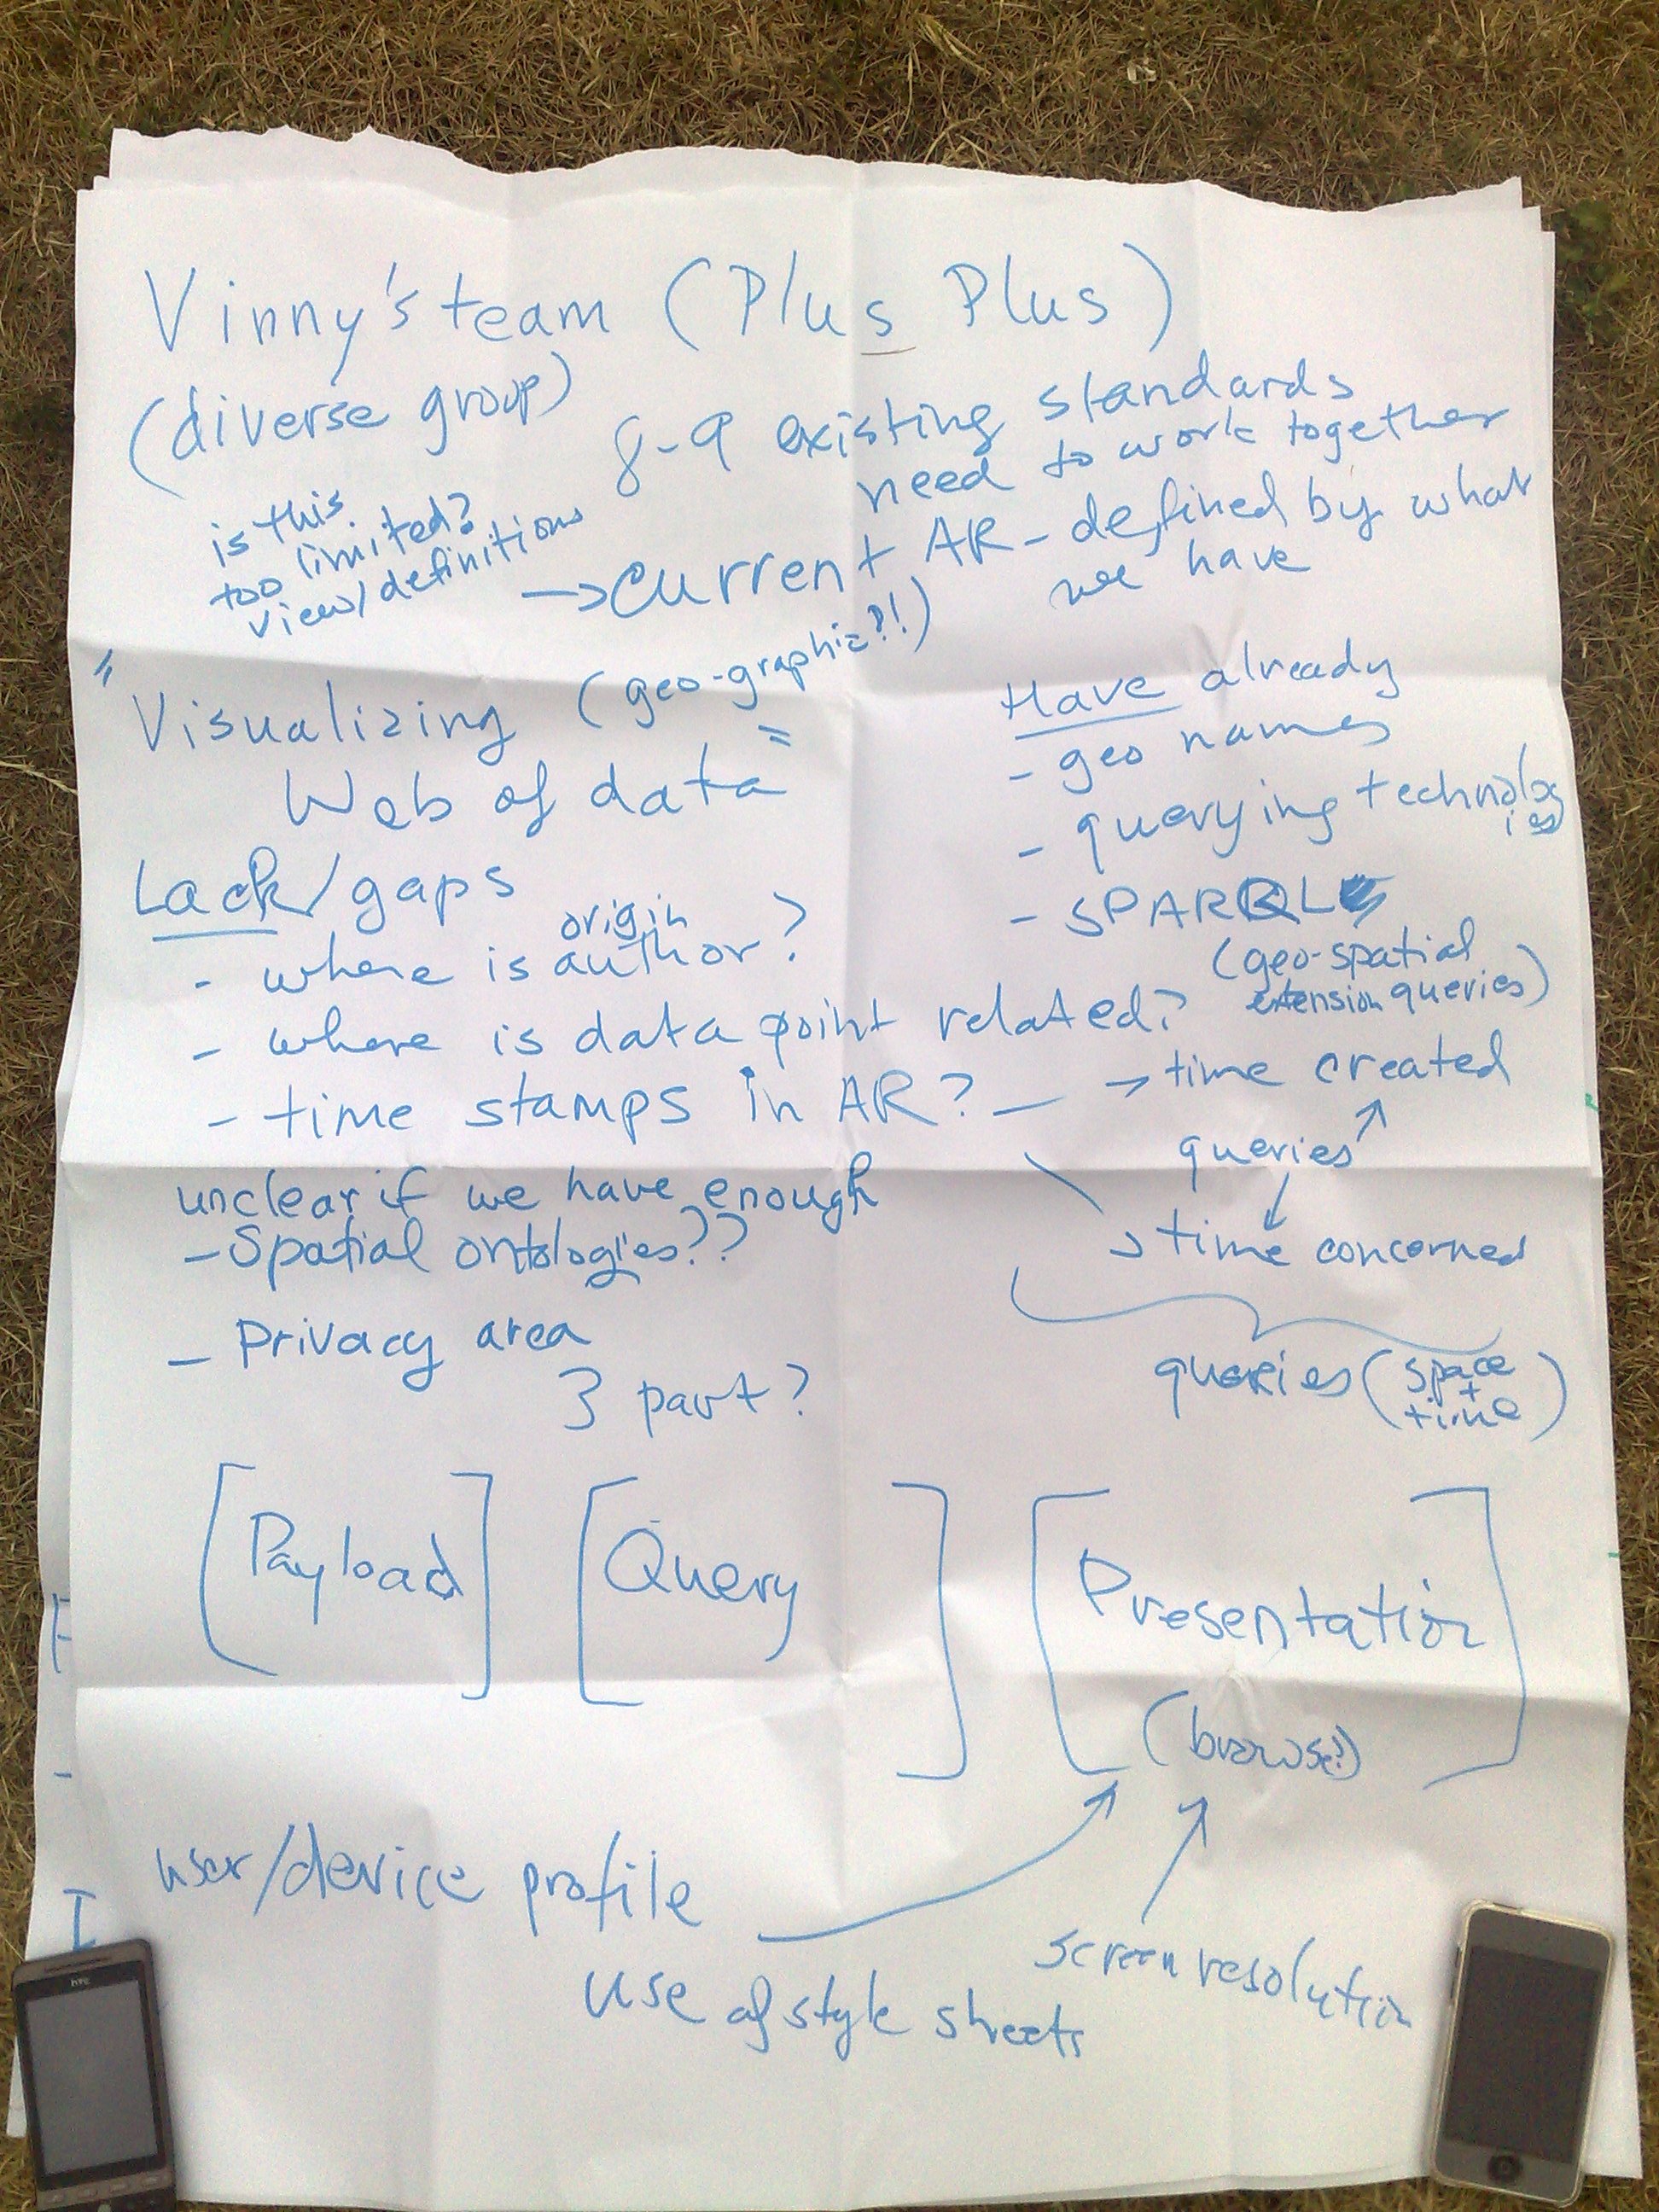 Vinny's team (Plus Plus)
(diverse group)
8-9 existing standards
need to work together
is this
too limited?
view/definitions
→ current AR - defined by what
we have
"Visualizing (geo-graphic?!)
Web of data"
Have already
- geo names
- querying technolog
ies
- SPARQL
(geo-spatial
extension queries)
Lack/gaps
origin
- where is author?
- where is data point related?
- time stamps in AR? — → time created
queries
→ time concerned
queries (space
+
time)
unclear if we have enough
- Spatial ontologies??
- Privacy area
3 part?
[Payload] [Query] [Presentation
(browse?)]
user/device profile
screen resolution
use of style sheets
htc